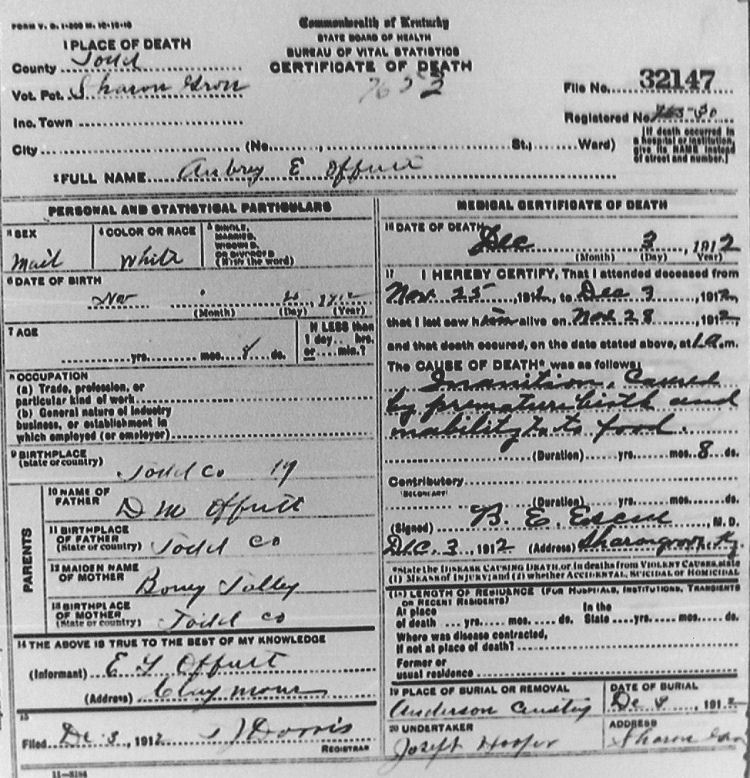 FORM V. S. 1-200 M. 10-10-10
Commonwealth of Kentucky
STATE BOARD OF HEALTH
BUREAU OF VITAL STATISTICS
CERTIFICATE OF DEATH
1 PLACE OF DEATH
County Todd
Vot. Pct. Sharon Grov
Inc. Town
City (No. , St.; Ward)
7653
File No. 32147
Registered No.
[If death occurred in
a hospital or institution,
give its NAME instead
of street and number.]
2 FULL NAME Aubrey E Offutt
PERSONAL AND STATISTICAL PARTICULARS
3 SEX
Mail
4 COLOR OR RACE
White
5 SINGLE,
MARRIED,
WIDOWED,
OR DIVORCED
(Write the word)
6 DATE OF BIRTH
Nov 1912
(Month) (Day) (Year)
7 AGE
yrs. mos. 8 ds.
If LESS than
1 day... hrs.
or... min.?
8 OCCUPATION
(a) Trade, profession, or
particular kind of work
(b) General nature of industry
business, or establishment in
which employed (or employer)
9 BIRTHPLACE
(state or country) Todd Co Ky
PARENTS
10 NAME OF
FATHER D M Offutt
11 BIRTHPLACE
OF FATHER
(State or country) Todd Co
12 MAIDEN NAME
OF MOTHER Boney Tolley
13 BIRTHPLACE
OF MOTHER
(State or country) Todd Co
14 THE ABOVE IS TRUE TO THE BEST OF MY KNOWLEDGE
(Informant) E Y Offutt
(Address) Claymour
15
Filed Dec 3, 1912 J Dorris
REGISTRAR
11-3184
MEDICAL CERTIFICATE OF DEATH
16 DATE OF DEATH
Dec 3, 1912
(Month) (Day) (Year)
17 I HEREBY CERTIFY, That I attended deceased from
Nov. 25, 1912, to Dec 3, 1912,
that I last saw him alive on Nov. 28, 1912,
and that death occured, on the date stated above, at 1 a.m.
The CAUSE OF DEATH* was as follows:
Inanition, Caused
by premature birth and
inability to food.
(Duration) yrs. mos. 8 ds.
Contributory
(SECONDARY)
(Duration) yrs. mos. ds.
(Signed) B. E. M.D.
Dec. 3, 1912 (Address) Sharongrove, Ky.
*State the DISEASE CAUSING DEATH, or, in deaths from VIOLENT CAUSES, state
(1) MEANS OF INJURY; and (2) whether ACCIDENTAL, SUICIDAL OR HOMICIDAL
(18) LENGTH OF RESIDENCE (FOR HOSPITALS, INSTITUTIONS, TRANSIENTS
OR RECENT RESIDENTS)
At place
of death yrs. mos. ds.
In the
State yrs. mos. ds.
Where was disease contracted,
If not at place of death?
Former or
usual residence
19 PLACE OF BURIAL OR REMOVAL
Anderson
DATE OF BURIAL
De 1912
20 UNDERTAKER
Joseph Hooper
ADDRESS
Sharon Grov